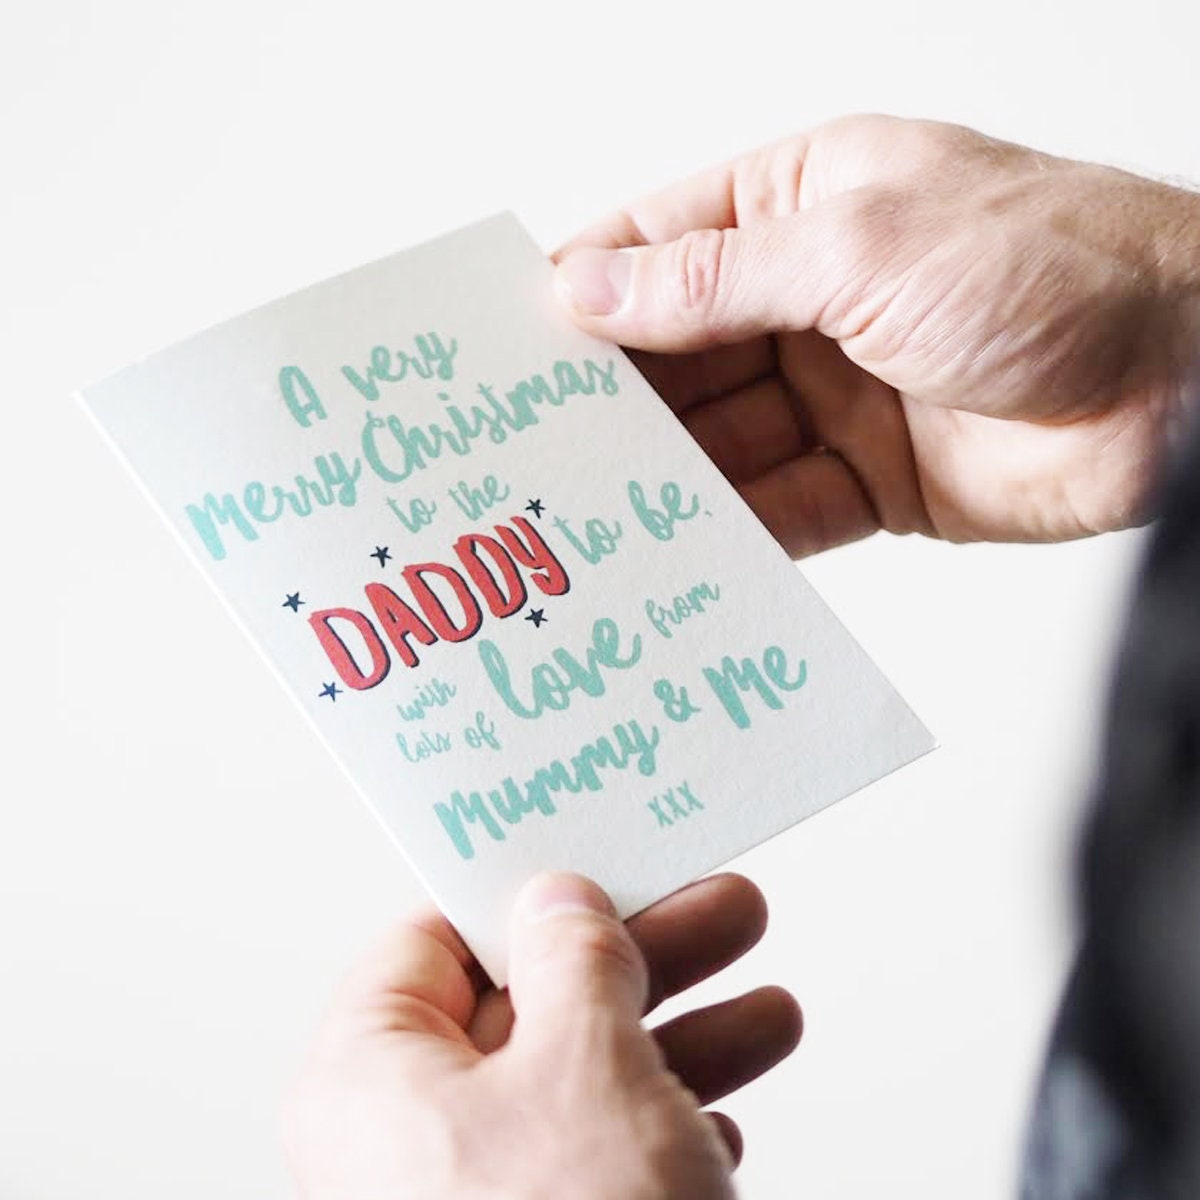 A very
Merry Christmas
to the
DADDY to be,
with
lots of love from
Mummy & Me
xxx